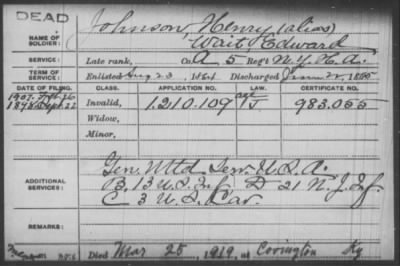 DEAD
NAME OF SOLDIER: Johnson, Henry (alias)
Wait, Edward
SERVICE: Late rank, Co. A 5 Reg't N.Y. H. A.
TERM OF SERVICE: Enlisted Aug 23, 1864 Discharged June 22, 1865
DATE OF FILING. CLASS. APPLICATION NO. LAW. CERTIFICATE NO.
1907. Feb. 26
1898 Sept. 22 Invalid, 1.210.109 983.055
Widow,
Minor,
ADDITIONAL SERVICES: Gen. Mtd. Serv. U.S.A.
B, 13 U.S. Inf. D 21 N.J. Inf
C 3 U.S. Cav.
REMARKS:
Died Mar 25, 1919, at Covington Ky